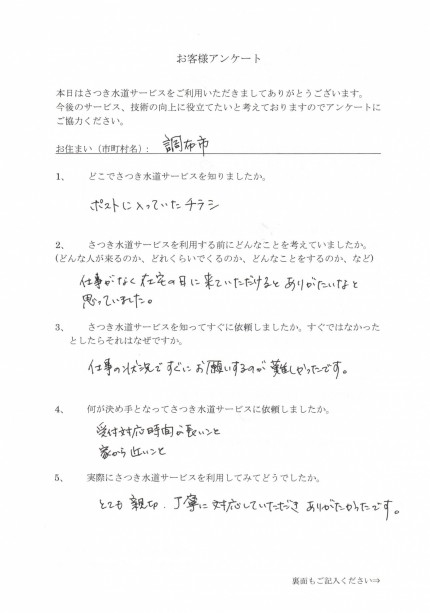 お客様アンケート
本日はさつき水道サービスをご利用いただきましてありがとうございます。
今後のサービス、技術の向上に役立てたいと考えておりますのでアンケートに
ご協力ください。
お住まい（市町村名）： 調布市
1、 どこでさつき水道サービスを知りましたか。
ポストに入っていたチラシ
2、 さつき水道サービスを利用する前にどんなことを考えていましたか。
(どんな人が来るのか、どれくらいでくるのか、どんなことをするのか、など)
仕事がなく在宅の日に来ていただけるとありがたいなと
思っていました。
3、 さつき水道サービスを知ってすぐに依頼しましたか。すぐではなかった
としたらそれはなぜですか。
仕事の状況ですぐにお願いするのが難しかったです。
4、 何が決め手となってさつき水道サービスに依頼しましたか。
受付対応時間が長いこと
家から近いこと
5、 実際にさつき水道サービスを利用してみてどうでしたか。
とても親切、丁寧に対応していただきありがたかったです。
裏面もご記入ください⇒